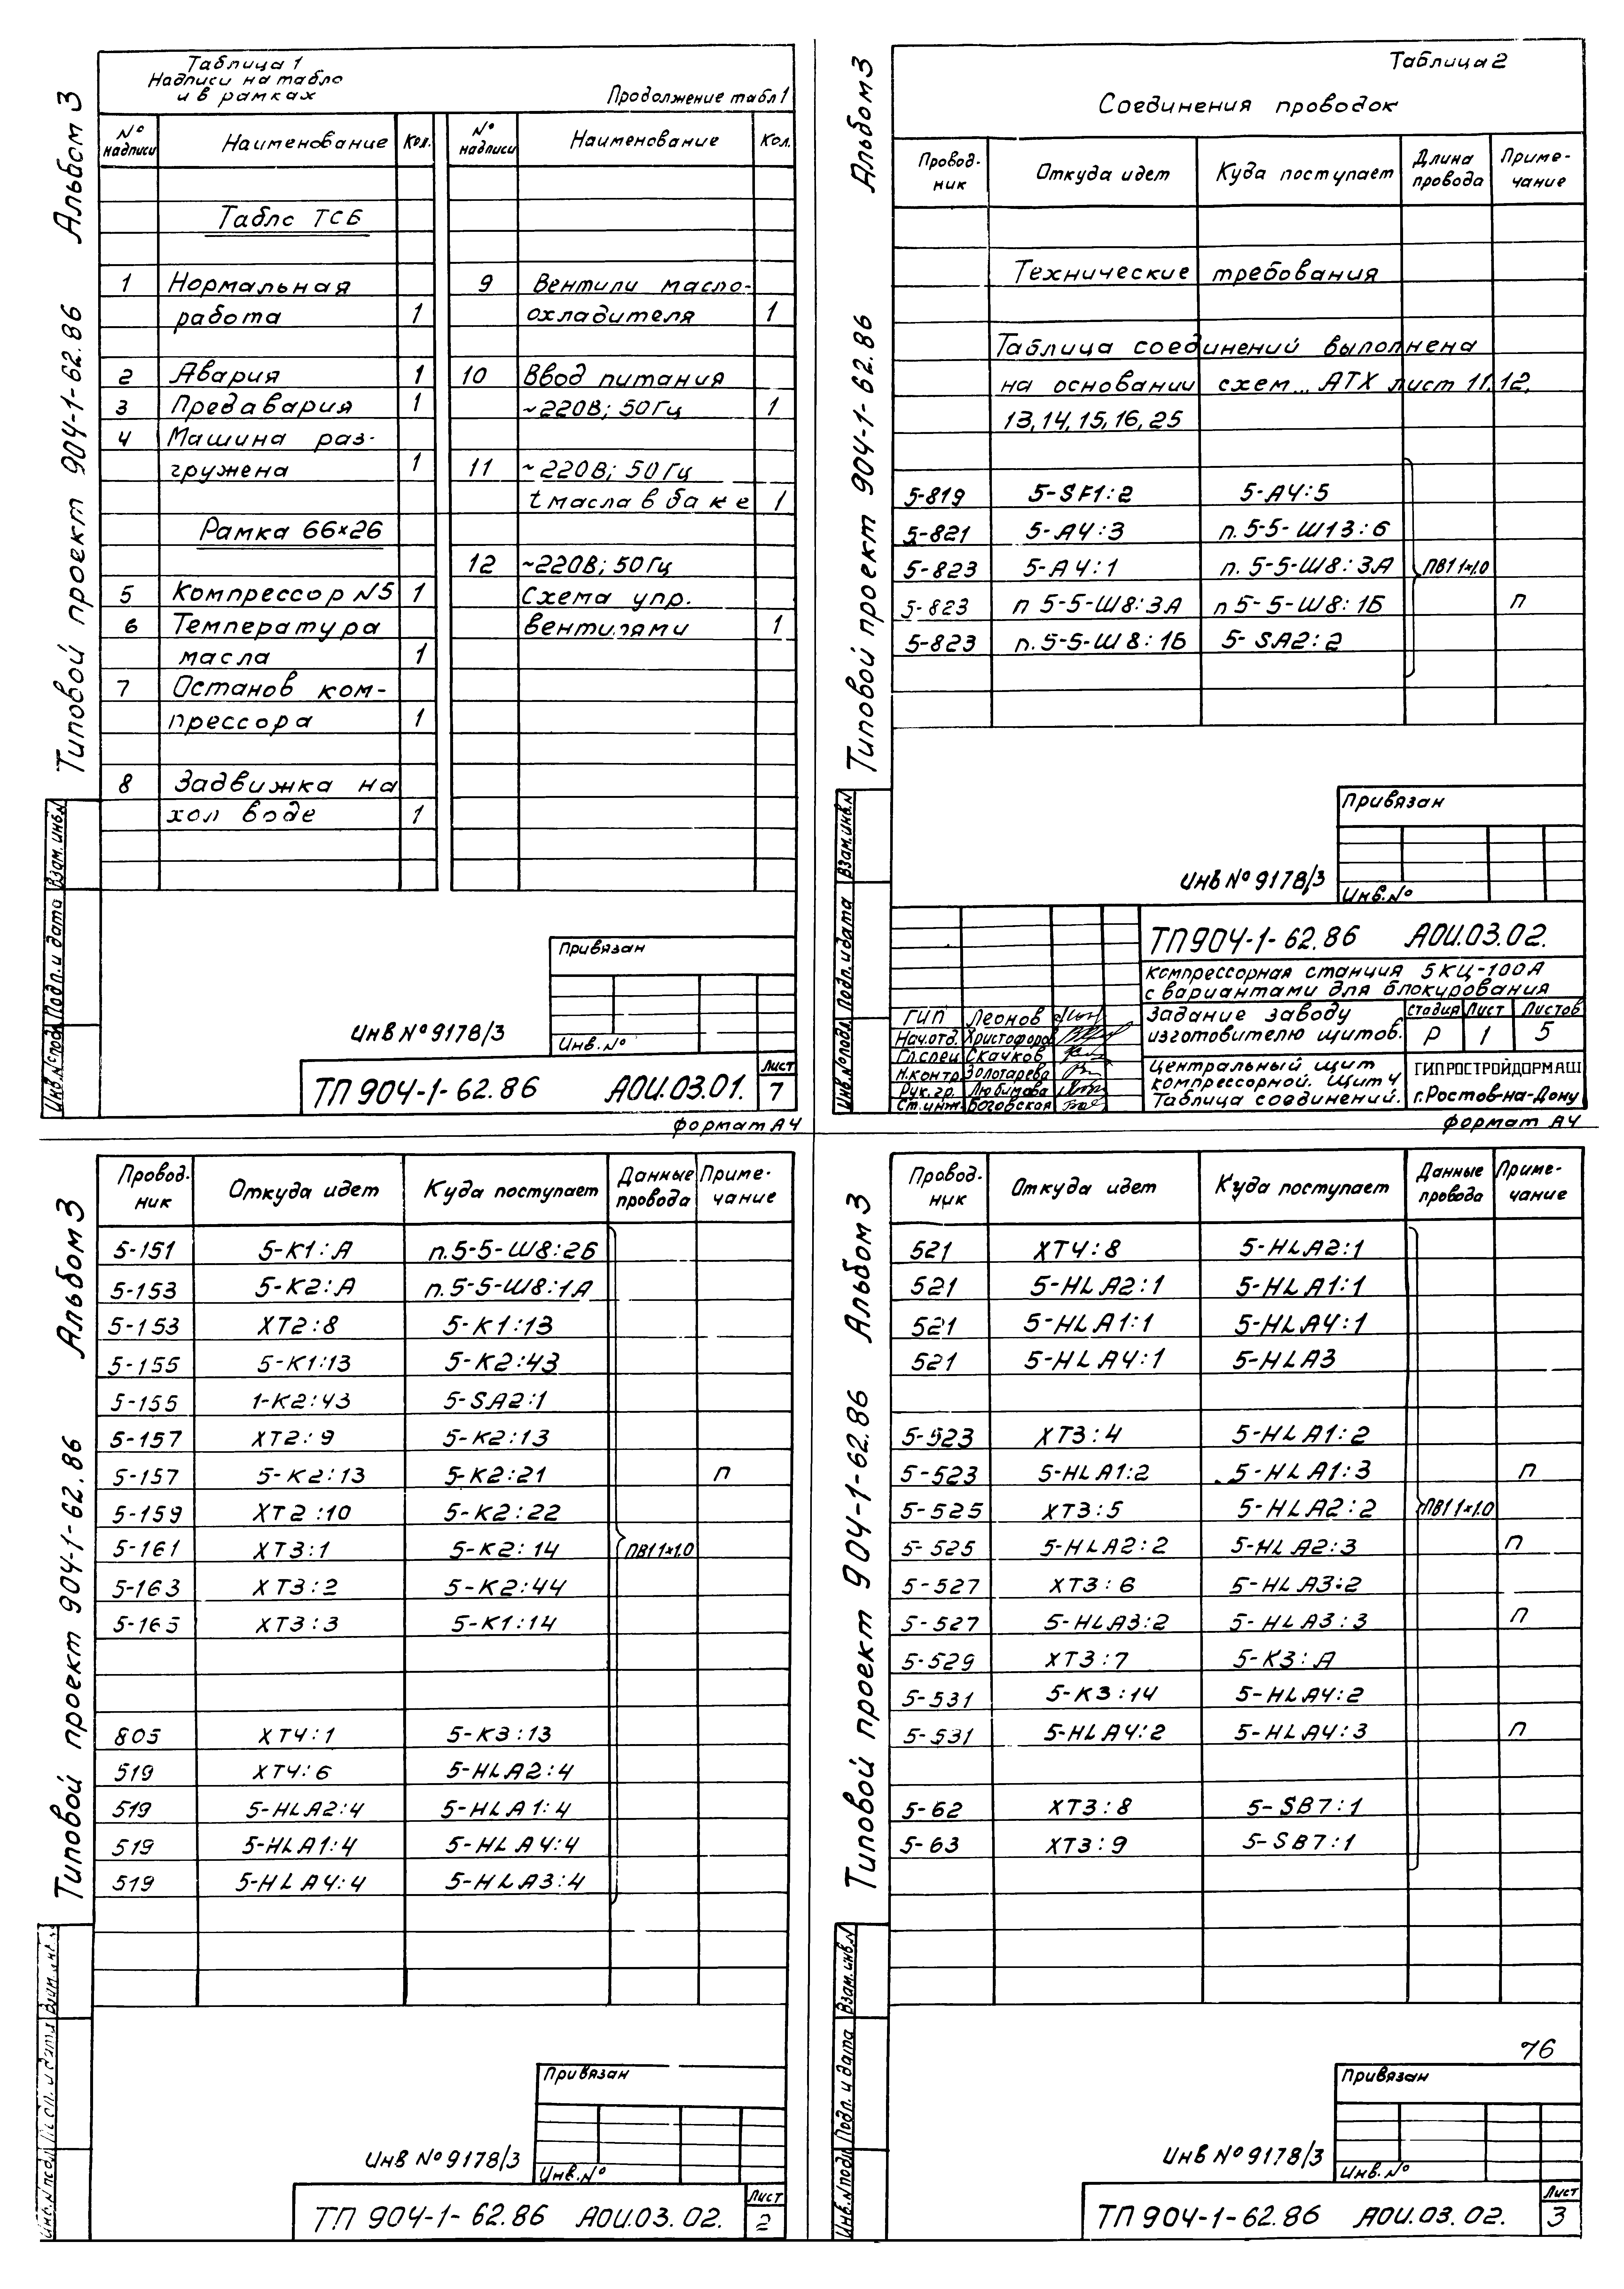 Альбом 3
Типовой проект 904-1-62.86
Таблица 1
Надписи на табло
и в рамках
Продолжение табл 1
№ надписи Наименование Кол. № надписи Наименование Кол.
Табло ТСБ
1 Нормальная
работа 1
2 Авария 1
3 Предавария 1
4 Машина раз-
гружена 1
Рамка 66×26
5 Компрессор N5 1
6 Температура
масла 1
7 Останов ком-
прессора 1
8 Задвижка на
хол воде 1
9 Вентили масло-
охладителя 1
10 Ввод питания
~220В; 50Гц 1
11 ~220В; 50Гц
t масла в баке 1
12 ~220В; 50Гц
Схема упр.
вентилями 1
Привязан
Инв.№
Инв № 9178/3
ТП 904-1-62.86 АОИ.03.01. Лист 7
Формат А4
Инв.№ подл. Подп. и дата Взам. инв.№
Альбом 3
Типовой проект 904-1-62.86
Таблица 2
Соединения проводок
Провод-ник Откуда идет Куда поступает Длина провода Приме-чание
Технические требования
Таблица соединений выполнена
на основании схем... АТХ лист 11.12,
13, 14, 15, 16, 25
5-819 5-SF1:2 5-А4:5
5-821 5-А4:3 п.5-5-Ш13:6
5-823 5-А4:1 п.5-5-Ш8:3А ПВ1 1×1.0
5-823 п 5-5-Ш8:3А п 5-5-Ш8:1Б п
5-823 п.5-5-Ш8:1Б 5-SA2:2
Привязан
Инв.№
Инв № 9178/3
ТП 904-1-62.86 АОИ.03.02.
Компрессорная станция 5КЦ-100А
с вариантами для блокирования
ГИП Леонов
Нач.отд. Христофоров
Гл.спец Скачков
Н.контр Золотарева
Рук.гр. Любимова
Ст.инж. Боговская
Задание заводу
изготовителю щитов.
Стадия Лист Листов
Р 1 5
Центральный щит
компрессорной. Щит 4
Таблица соединений.
ГИПРОСТРОЙДОРМАШ
г.Ростов-на-Дону
Формат А4
Инв.№ подл. Подп. и дата Взам.инв.N
Альбом 3
Типовой проект 904-1-62.86
Провод-ник Откуда идет Куда поступает Данные провода Приме-чание
5-151 5-К1:А п.5-5-Ш8:2Б
5-153 5-К2:А п.5-5-Ш8:1А
5-153 ХТ2:8 5-К1:13
5-155 5-К1:13 5-К2:43
5-155 1-К2:43 5-SA2:1
5-157 ХТ2:9 5-К2:13
5-157 5-К2:13 5-К2:21 п
5-159 ХТ2:10 5-К2:22
5-161 ХТ3:1 5-К2:14 ПВ1 1×1.0
5-163 ХТ3:2 5-К2:44
5-165 ХТ3:3 5-К1:14
805 ХТ4:1 5-К3:13
519 ХТ4:6 5-HLA2:4
519 5-HLA2:4 5-HLA1:4
519 5-HLA1:4 5-HLA4:4
519 5-HLA4:4 5-HLA3:4
Привязан
Инв.№
Инв № 9178/3
ТП 904-1-62.86 АОИ.03.02. Лист 2
Альбом 3
Типовой проект 904-1-62.86
Провод-ник Откуда идет Куда поступает Данные провода Приме-чание
521 ХТ4:8 5-HLA2:1
521 5-HLA2:1 5-HLA1:1
521 5-HLA1:1 5-HLA4:1
521 5-HLA4:1 5-HLA3
5-523 ХТ3:4 5-HLA1:2
5-523 5-HLA1:2 5-HLA1:3 п
5-525 ХТ3:5 5-HLA2:2 ПВ1 1×1.0
5-525 5-HLA2:2 5-HLA2:3 п
5-527 ХТ3:6 5-HLA3:2
5-527 5-HLA3:2 5-HLA3:3 п
5-529 ХТ3:7 5-К3:А
5-531 5-К3:14 5-HLA4:2
5-531 5-HLA4:2 5-HLA4:3 п
5-62 ХТ3:8 5-SB7:1
5-63 ХТ3:9 5-SB7:1
76
Привязан
Инв.№
Инв № 9178/3
ТП 904-1-62.86 АОИ.03.02. Лист 3
Инв.№ подл Подп. и дата Взам.инв.№